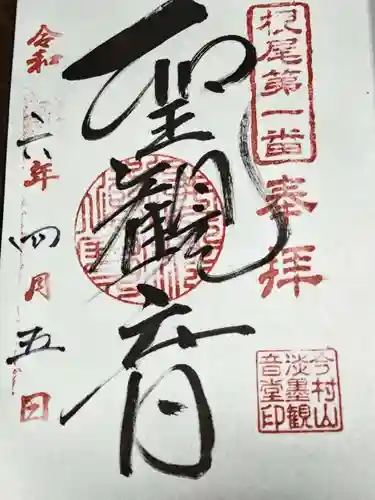 根尾第一番
奉拝
聖観音
令和六年四月五日
今村山
淡墨観
音堂印